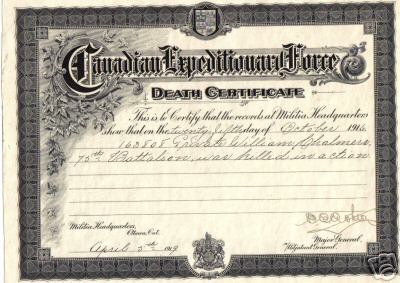 Canadian Expeditionary Force
DEATH CERTIFICATE
This is to Certify that the records at Militia Headquarters
show that on the twenty fifth day of October 1916
163808 Private William Chalmers,
75th Battalion, was killed in action
Militia Headquarters,
Ottawa, Ont.
April 5th 1919
Major General,
Adjutant General,